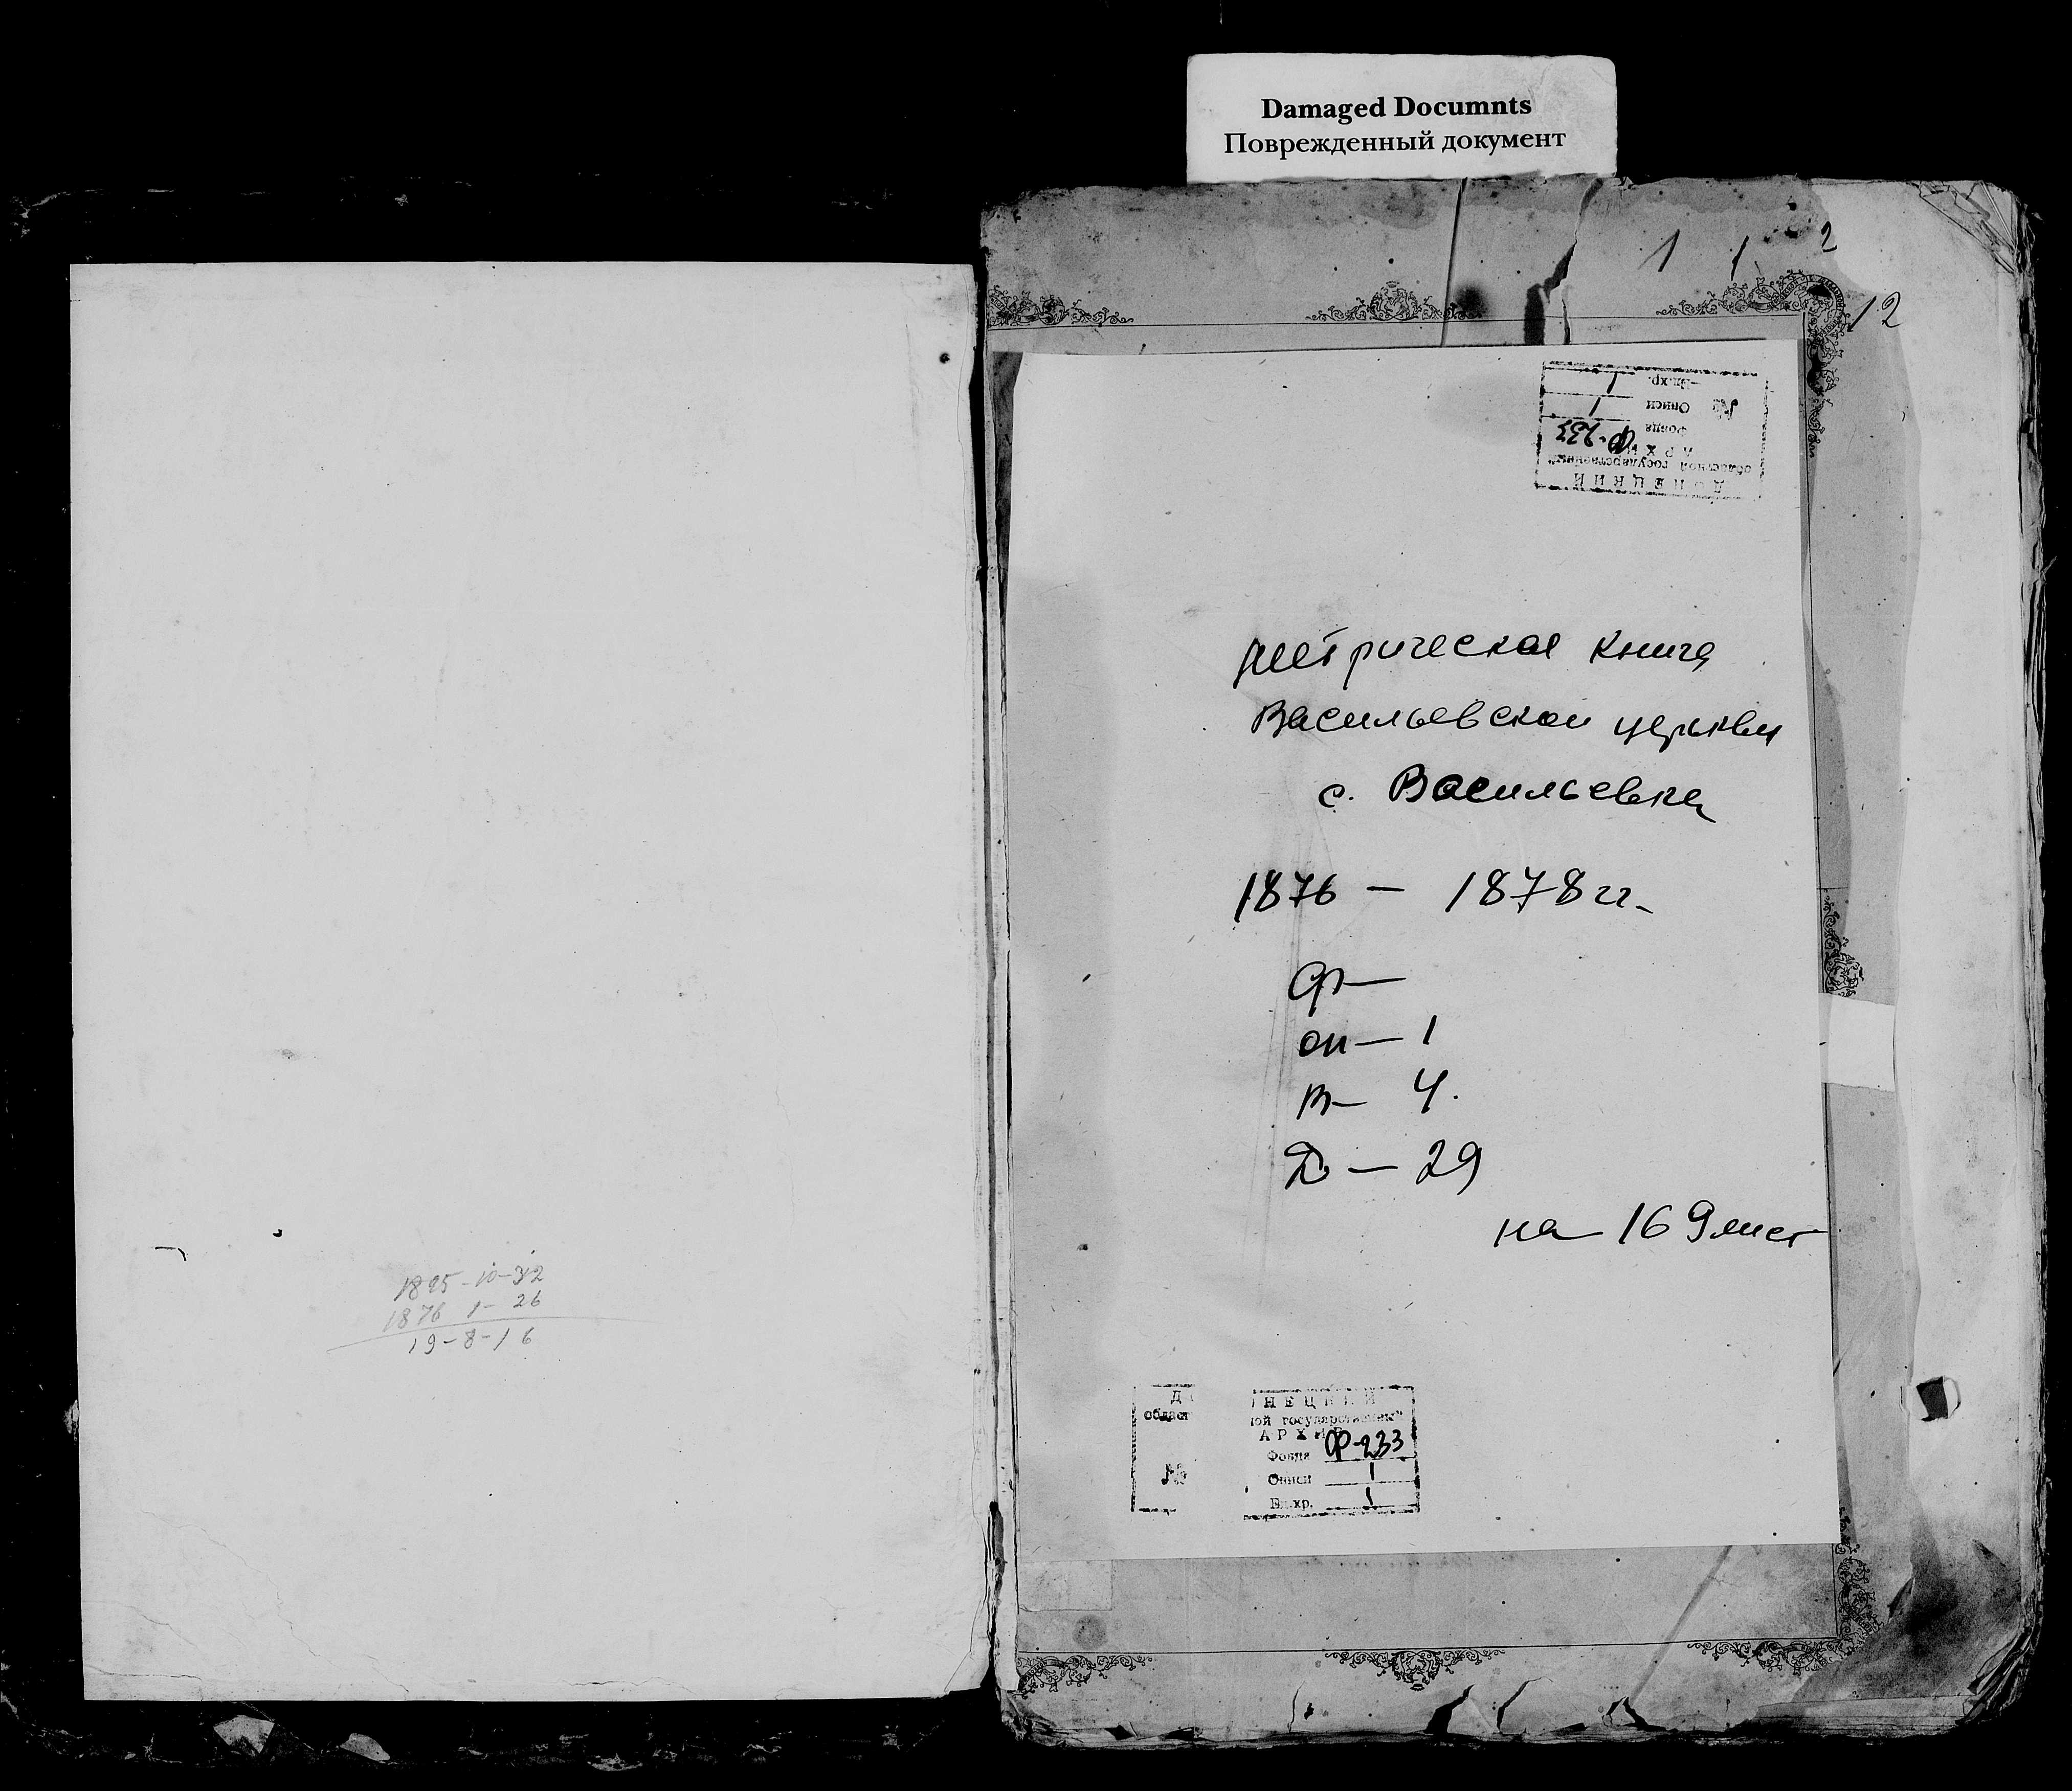 Damaged Documnts
Поврежденный документ
1 1 2
12
ДОНЕЦКИЙ
областной государственный
АРХИВ
Фонда Ф-233
№ Описи 1
Ед.хр. 1
Метрическая книга
Васильевской церкви
с. Васильевка
1876 — 1878 гг.
Ф —
оп — 1
т — 4.
Д — 29
на 169 лист
1895-10-32
1876 1- 26
19-8-16
ДОНЕЦКИЙ
областной государственный
АРХИВ
Фонда Ф-233
№ Описи 1
Ед.хр. 1